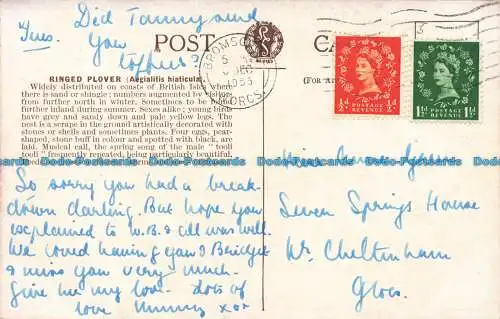 Tues. Did Tommy send
You
toffees?
POST CA
(FOR A
BROMSG
5
DEC
1955
WORCS.
½D POSTAGE REVENUE ½D
1½D POSTAGE REVENUE 1½D
RINGED PLOVER (Aegialitis hiaticula).
Widely distributed on coasts of British Isles where
there is sand or shingle; numbers augmented by visitors
from further north in winter. Sometimes to be found
further inland during summer. Sexes alike; young birds
have grey and sandy down and pale yellow legs. The
nest is a scrape in the ground artistically decorated with
stones or shells and sometimes plants. Four eggs, pear-
shaped, stone buff in colour and spotted with black, are
laid. Musical call, the spring song of the male "tooli
tooli" frequently repeated, being particularly beautiful.
So sorry you had a break-
down darling. But hope you
explained to W.B. & all was well.
We loved having you & Bridget
& miss you very much.
Give her my love. lots of
love Mummy xox
Miss
Seven Springs House
Nr. Cheltenham
Glos.
bidStart bidStart bidStart bidStart bidStart bidStart